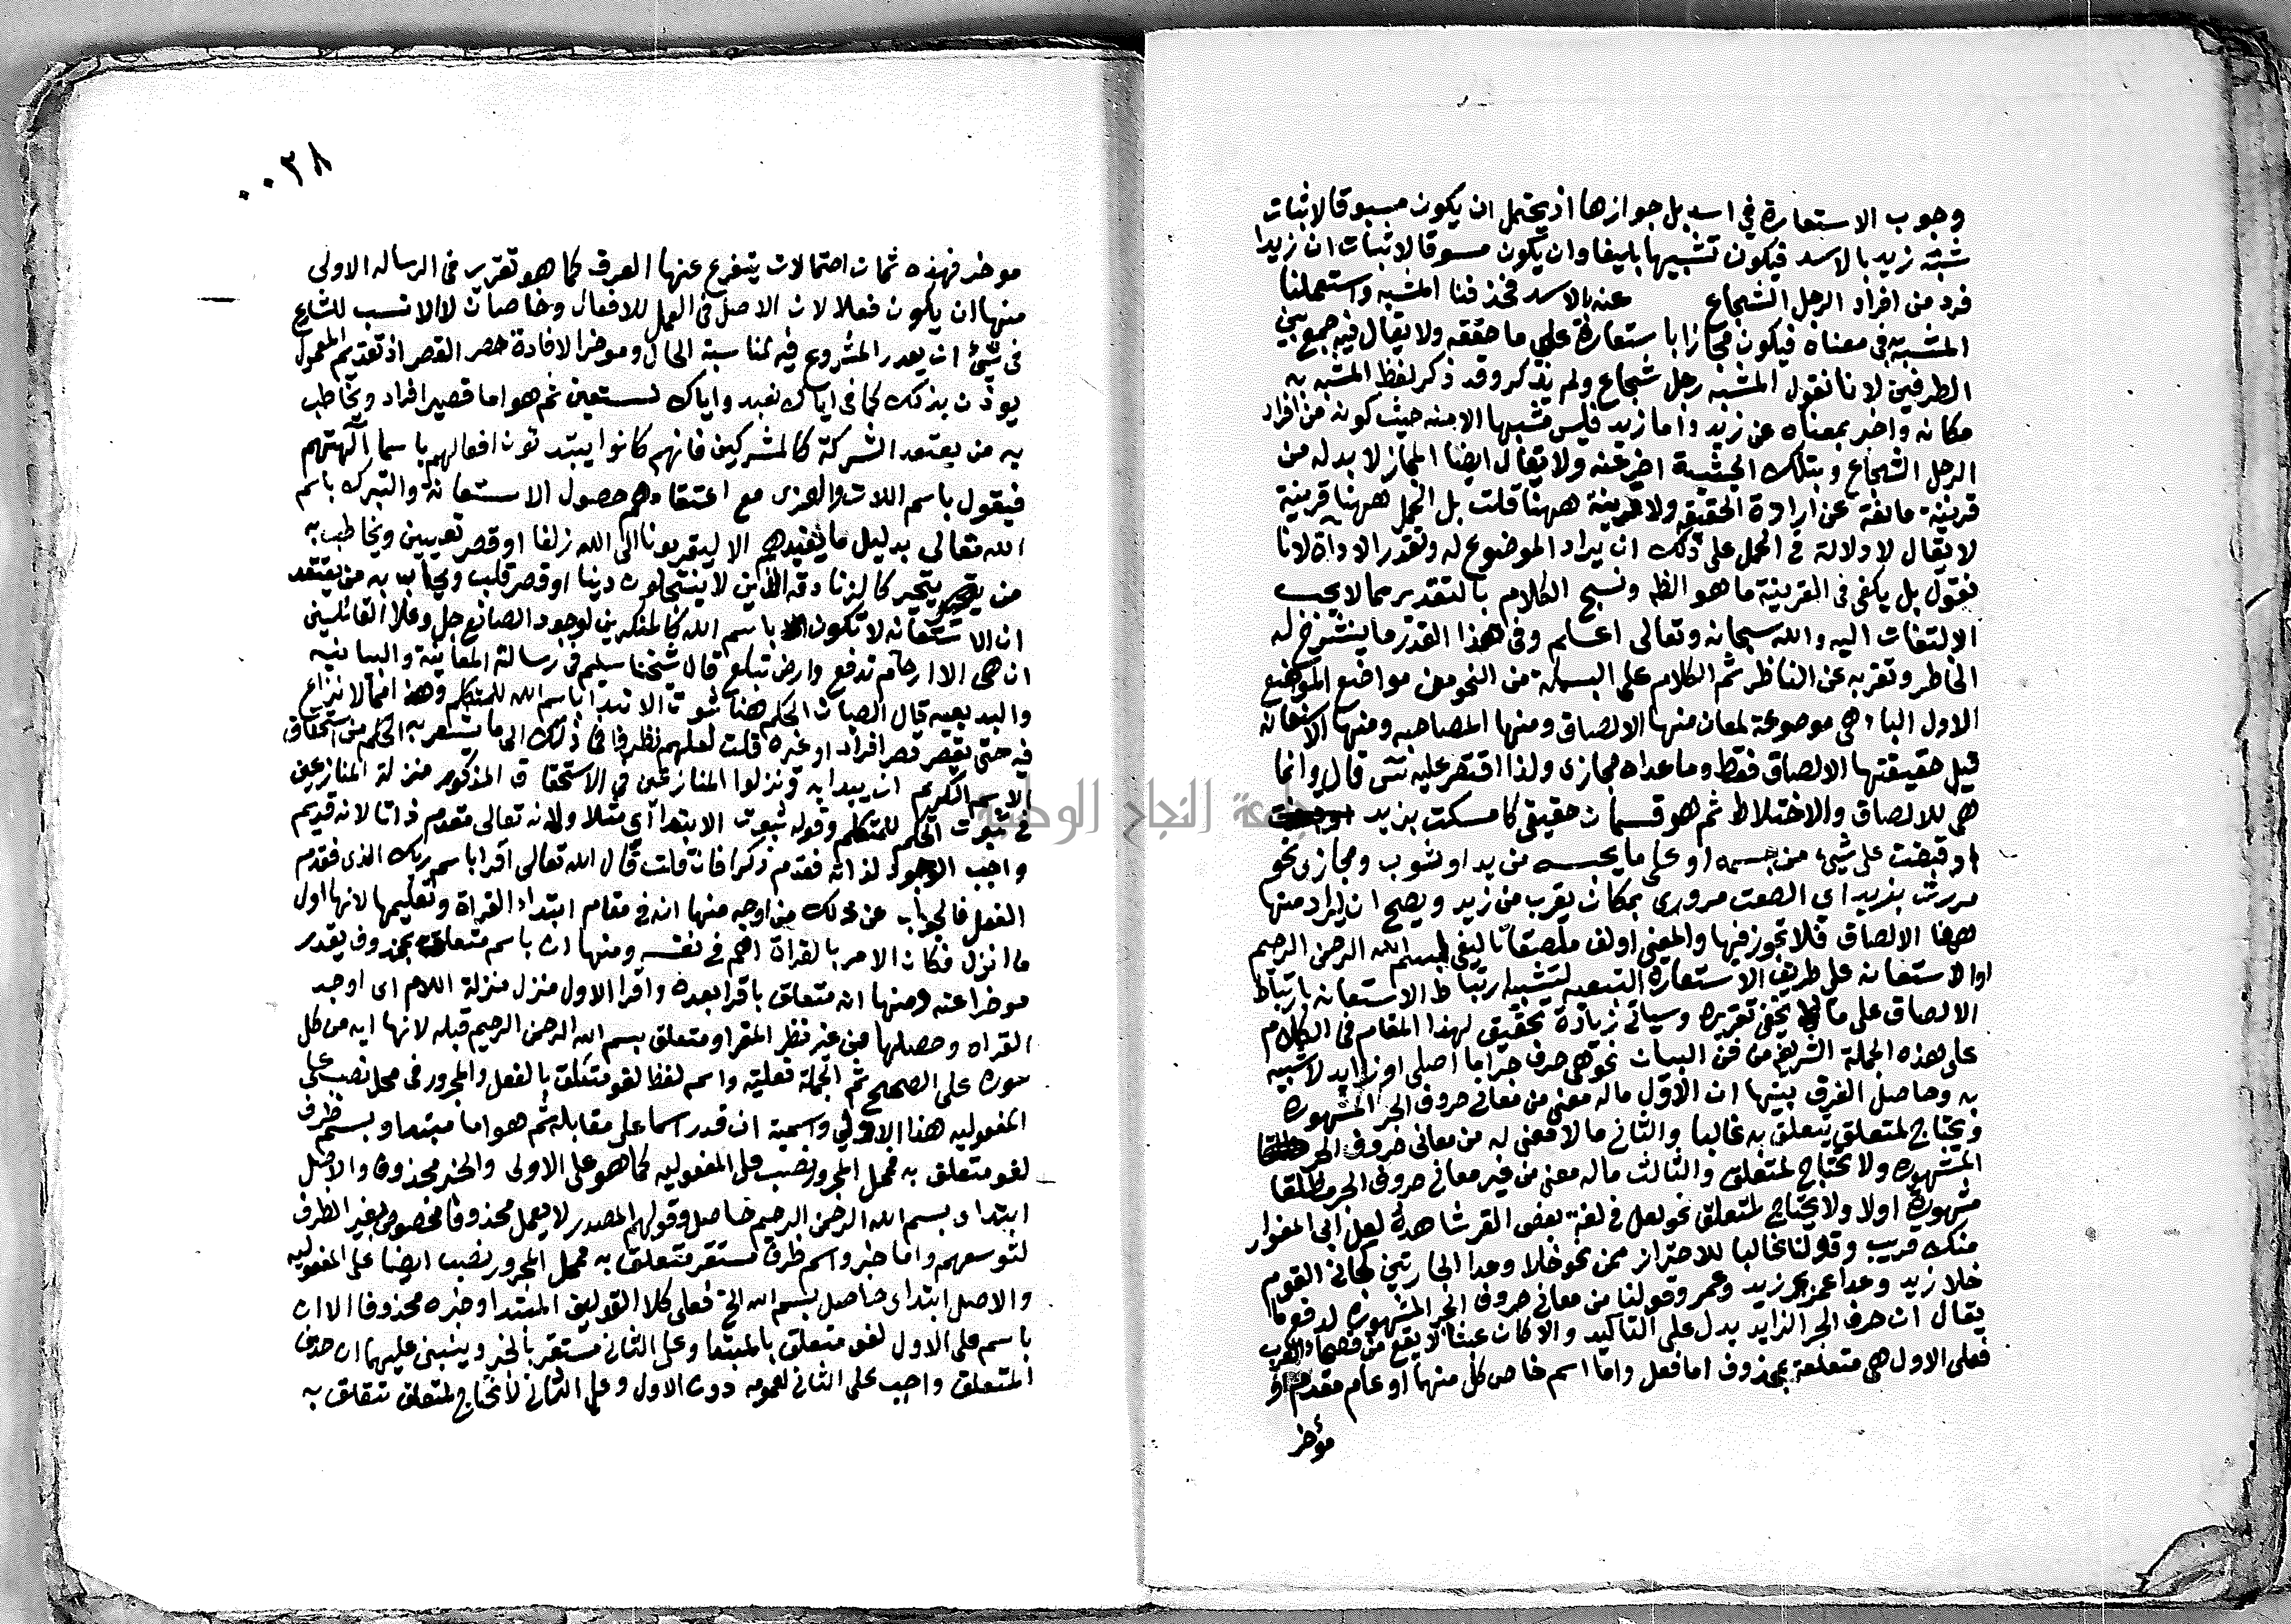 وجوب الاستعارة في اسد بل جوازها اذ يحتمل ان يكون مسبوقا لاثبات
شبه زيد بالاسد فيكون تشبيها بليغا وان يكون مسوقا لاثبات ان زيدا
فرد من افراد الرجل الشجاع عنه بالاسد فحذفنا المشبه واستعملنا
المشبه به في معناه فيكون مجازا باستعارة علي ما حققه ولا يقال فيه جمع بين
الطرفين لانا نقول المشبه رجل شجاع ولم يذكر وقد ذكر لفظ المشبه به
مكانه واخبر بمعناه عن زيد واما زيد فليس مشبها الا من حيث كونه من افراد
الرجل الشجاع وبتلك الحيثية اخبر عنه ولا يقال ايضا المجاز لا بد له من
قرينة مانعة عن ارادة الحقيقه ولا قرينة ههنا قلت بل الحمل ههنا قرينة
لا يقال لا دلالة في الحمل على ذلك ان يراد الموضوع له وتقدر الاداة لانا
نقول بل يكفي في القرينة ما هو الظ ونسج الكلام بالتقدير مما لا يجب
الالتفات اليه والله سبحانه وتعالى اعلم وفي هذا القدر ما ينشرح له
الخاطر وتقر به عن الناظر ثم الكلام على البسملة من النحو من مواضع الموضع
الاول الباء هي موضوعة لمعان منها الالصاق ومنها المصاحبه ومنها الاستعانه
قيل حقيقتها الالصاق فقط وما عداه مجازي ولذا اقتصر عليه س قال وانما
هي للالصاق والاختلاط ثم هو قسمان حقيقي كامسكت بزيد
اذ قبضت على شيء من جسمه او على ما يحبسه من يد او ثوب ومجازي نحو
مررت بزيد اي الصقت مروري بمكان يقرب من زيد ويصح ان يراد منها
ههنا الالصاق فلا تجوز فيها والمعنى اولف ملصقا تاليفي ببسم الله الرحمن الرحيم
او الاستعانه على طريق الاستعارة التبعيه لتشبيه ارتباط الاستعانه بارتباط
الالصاق على ما لا يخفى تقريره وسياتي زيادة تحقيق لهذا المقام في الكلام
على هذه الجملة الشريفه من فن البيان نحو هي حرف جر اما اصلي او زايد لا شبيه
به وحاصل الفرق بينها ان الاول ما له معنى من معاني حروف الجر المشهوره
ويحتاج لمتعلق يتعلق به غالبا والثاني ما لا معنى له من معاني حروف الجر
المشهوره ولا يحتاج لمتعلق والثالث ما له معنى من غير معاني حروف الجر مطلقا
مشهورة اولا ولا يحتاج لمتعلق نحو لعل في لغة بعض القر شاهده لعل ابي المغوار
منك قريب وقولنا غالبا للاحتراز ممن نحو خلا وعدا الجارتين كجاني القوم
خلا زيد وعدا عمر بجر زيد وعمر وقولنا من معاني حروف الجر المشهوره لدفع ما
يقال ان حرف الجر الزايد يدل على التاكيد والا كان عبثا لا يقع من فصحاء العرب
فعلى الاول هي متعلقة بمحذوف اما فعل واما اسم خاص كل منها او عام مقدم او
مؤخر
٠٠٣٨
موخر فهذه ثمان احتمالات يتفرع عنها العرف كما هو تقرير في الرساله الاولى
منها ان يكون فعلا لان الاصل في العمل للافعال وخاصا لان الانسب للشارع
في شيء ان يعدر المشروع فيه لمناسبة الحال وموخرا لافادة حصر القصر اذ تقديم المعمول
يوذن بذلك كما في اياك نعبد واياك نستعين ثم هو اما قصر افراد ويخاطب
به من يعتقد الشركة كالمشركين فانهم كانوا يبتدئون افعالهم باسما آلهتهم
فيقول باسم اللات والعزى مع اعتقادهم حصول الاستعانة والتبرك باسم
الله تعالى بدليل ما نعبدهم الا ليقربونا الى الله زلفا او قصر تعيين ويخاطب به
من يتحير كالزنادقه الذين لا ينتحلون دينا او قصر قلب ويخاطب به من يعتقد
ان الاستعانه لا تكون باسم الله كالمنكرين لوجود الصانع جل وعلا القائلين
ان هي الا ارحام تدفع وارض تبلع قال شيخنا سليم في رسالة المعانية والبيانيه
والبديعيه قال الصبان الحكم هنا ثبوت الابتدا باسم الله للمتكلم وهذا مما لا نزاع
فيه حتى يقصر قصر افراد او غيره قلت لعلهم نظروا في ذلك الى ما يشعر به الحكم من استحقاق
الاسم الكريم ان يبدا به ونزلوا المنازعين في الاستحقاق المذكور منزلة المنازعين
في ثبوت الحكم للمتكلم وقوله ثبوت الابتدا آي مثلا ولانه تعالى مقدم ذاتا لانه قديم
واجب الوجود لذاته فقدم ذكرا فان قلت قال الله تعالى اقرا باسم ربك الذي فقدم
الفعل فالجواب عن ذلك من اوجه منها انه في مقام ابتداء القراة وتعليمها لانها اول
ما انزل فكان الامر بالقراة اهم في نفسه ومنها ان باسم متعلق بمحذوف يقدر
موخرا عنه ومنها انه متعلق باقرا بعده واقرا الاول منزل منزلة اللازم اي اوجد
القراه وحصلها من غير نظر المقرا ومتعلق بسم الله الرحمن الرحيم قبله لانها ايه من كل
سوره على الصحيح ثم الجملة فعليه واسم لفظا لغو متعلق بالفعل والمجرور في محل نصب على
المفعوليه هذا الاولي واسمية ان قدر اسما على مقابله ثم هو اما مبتدا وبسم ظرف
لغو متعلق به فمحل المجرور نصب على المفعوليه كما هو على الاولى والخبر محذوف والاصل
ابتداء بسم الله الرحمن الرحيم حاصل وقولهم المصدر لا يعمل محذوفا مخصوص بغير الظرف
لتوسعهم واما خبر واسم ظرف مستقر متعلق به فمحل المجرور نصب ايضا على المفعوليه
والاصل ابتداي حاصل بسم الله الخ فعلى كلا القولين المبتدا وخبره محذوفا الا ان
باسم على الاول لغو متعلق بالمبتدا وعلى الثاني مستقر بالخبر وينبني عليهما ان حذف
المتعلق واجب على الثاني لعمومه دون الاول وعلى الثاني لا يحتاج لمتعلق تتعلق به